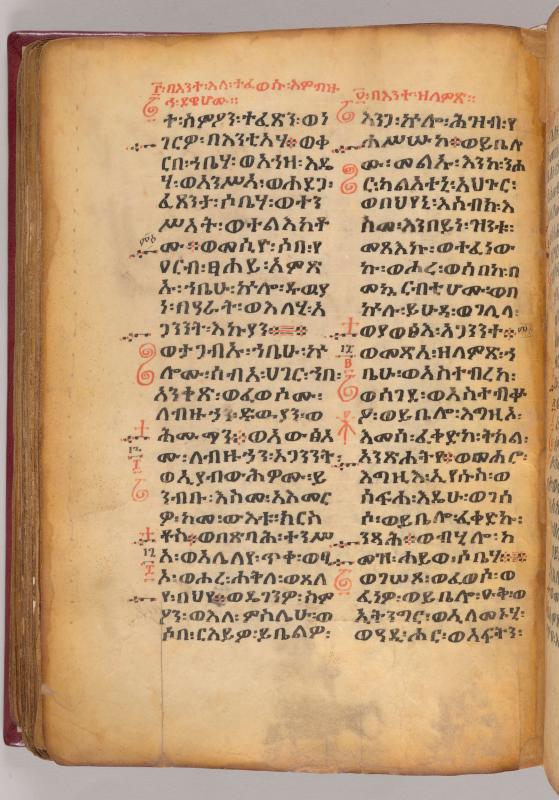 ፫፡በእንተ፡እለ፡ተፈወሱ፡እምብዙ
ኅ፡ደዌሆሙ።
ተ፡ስምዖን፡ተፈጽን፡ወነ
ገርዎ፡በእንቲአሃ፡ወቀ
ርበ፡ኀቤሃ፡ወአኀዛ፡እዴ
ሃ፡ወአንሥአ፡ወሐደጋ፡
ፈጸንታ፡ሶቤሃ፡ወተን
ሥአት፡ወተልእከቶ
ሙ፡ወመሲዮ፡ሶበ፡የ
ዐርብ፡ፀሐይ፡አምጽ
ኡ፡ኀቤሁ፡ኵሎ፡ዱዉያ
ነ፡በሃራት፡ወእለሂ፡አ
ጋንንት፡እኩያን፡
ወተጋብኡ፡ኀቤሁ፡ኵ
ሎሙ፡ሰብአ፡ሀገር፡ኀበ፡
አንቀጽ፡ወፈወሶሙ፡
ለብዙኃን፡ድውያን፡ወ
ሕሙማን፡ወአውፅአ
ሙ፡ለብዙኃን፡አጋንንት፡
ወኢያብውሖሙ፡ይ
ንብቡ፡እስመ፡አእመር
ዎ፡ከመ፡ውእቱ፡ክርስ
ቶስ፡ወበጽባሕ፡ተንሥ
አ፡ወሌሊየ፡ጥቀ፡ወፂ
አ፡ወሖረ፡ሐቅለ፡ወጸለ
የ፡በህየ፡ወዴገንዎ፡ስም
ዖን፡ወእለ፡ምስሌሁ፡ወ
ሶበ፡ርእይዎ፡ይቤልዎ፡
፬፡በእንተ፡ዘለምጽ።
እንጋ፡ኵሎ፡ሕዝብ፡የ
ሐሥሡከ፡ወይቤሎ
ሙ፡መልኡ፡እንከ፡ንሑ
ር፡ካልአተኒ፡አህጉር፡
ወበህየኒ፡እስብክ፡እ
ስመ፡እንበይነ፡ዝንቱ፡
መጻእኩ፡ወተፈነው
ኩ፡ወሖረ፡ወሰበከ፡በ
መኳርብቲሆሙ፡ወበ
ኵሉ፡ይሁዳ፡ወገሊላ፡
ወያወፅእ፡አጋንንተ፡
ወመጽአ፡ዘለምጽ፡ኀ
ቤሁ፡ወአስተብረከ፡
ወሰገደ፡ወአስተብቍ
ዖ፡ወይቤሎ፡እግዚኦ፡
እመሰ፡ፈቀድከ፡ትክል፡
አንጽሖትየ፡ወመሐሮ፡
እግዚእ፡ኢየሱስ፡ወ
ሰፍሐ፡እዴሁ፡ወገሰ
ሶ፡ወይቤሎ፡ፈቀድኩ፡
ንጻሕ፡ወብሂሎ፡ከ
መዝ፡ሐይወ፡ሶቤሃ፡
ወገሠጾ፡ወፈወሶ፡ወ
ፈነዎ፡ወይቤሎ፡ዮቅ፡ወ
ኢትንግር፡ወኢለመኑሂ፡
ወዳዲ፡ሑር፡ወአፍትን፡